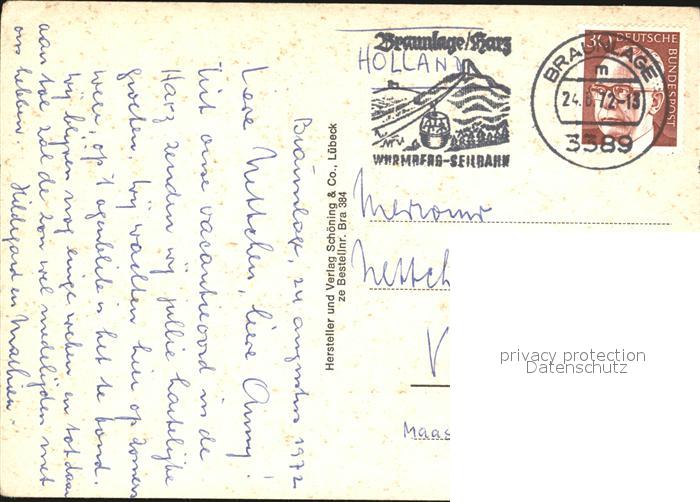 Braunlage/Harz
HOLLAND
WURMBERG-SEILBAHN
BRAUNLAGE
m
24.8.72-13
3389
30 DEUTSCHE
BUNDESPOST
Braunlage, 24 augustus 1972
Lieve Nettchen, lieve Anny!
Uit onze vacantieoord in de
Harz zenden wij jullie hartelijke
groeten. Wij wachten hier op zomers
weer, op 't ogenblik is het te koud.
Wij blijven nog enige weken en tot daar
aan toe zal de zon wel medelijden met
ons hebben.
Hildegard en Mathieu.
Hersteller und Verlag Schöning & Co., Lübeck
ze Bestellnr. Bra 384
Mevrouw
Nettch
V
Maas
privacy protection
Datenschutz